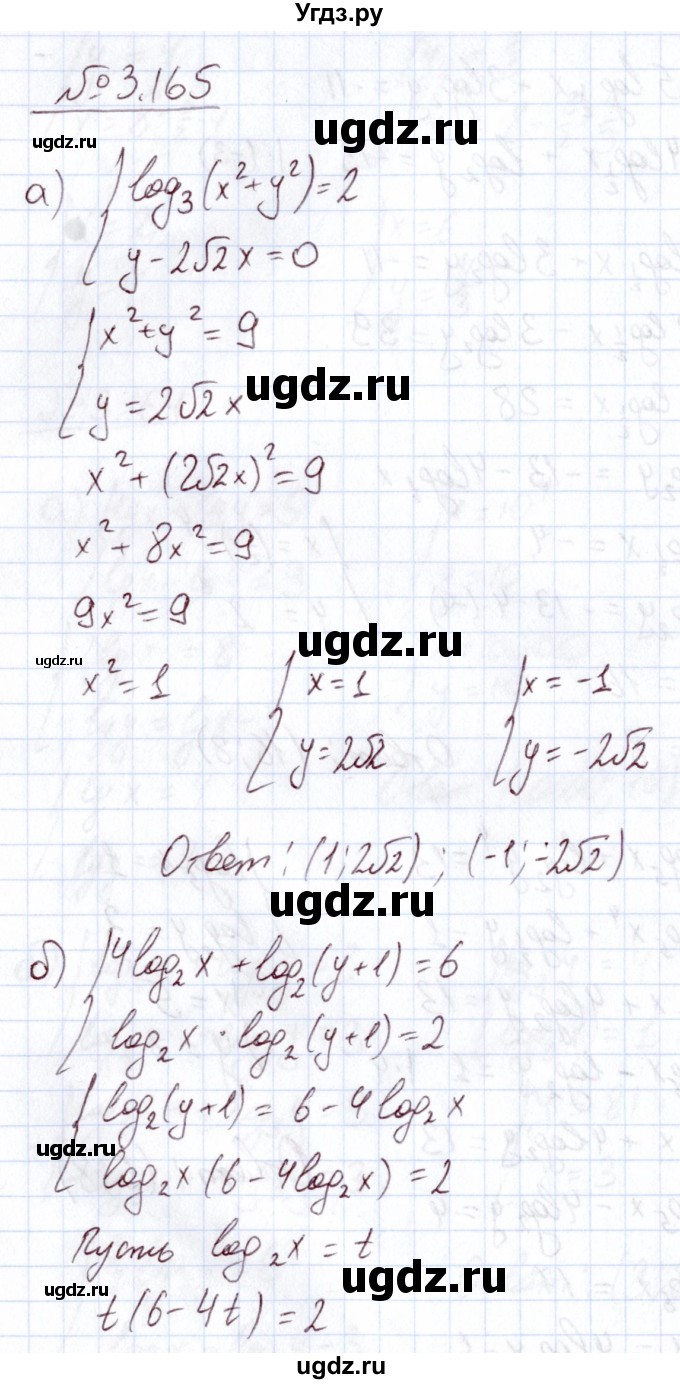 Угдз.ру
№3.165
ugdz.ru
ugdz.ru
а) log₃(x²+y²)=2
y-2√2x=0
x²+y²=9
ugdz.ru
y=2√2x
x²+(2√2x)²=9
x²+8x²=9
9x²=9
ugdz.ru
ugdz.ru
x²=1 x=1 x=-1
y=2√2 y=-2√2
Ответ: (1;2√2); (-1;-2√2)
ugdz.ru
б) 4log₂x+log₂(y+1)=6
log₂x·log₂(y+1)=2
log₂(y+1)=6-4log₂x
ugdz.ru
log₂x(6-4log₂x)=2
Пусть log₂x=t
ugdz.ru
ugdz.ru
t(6-4t)=2
ugdz.ru